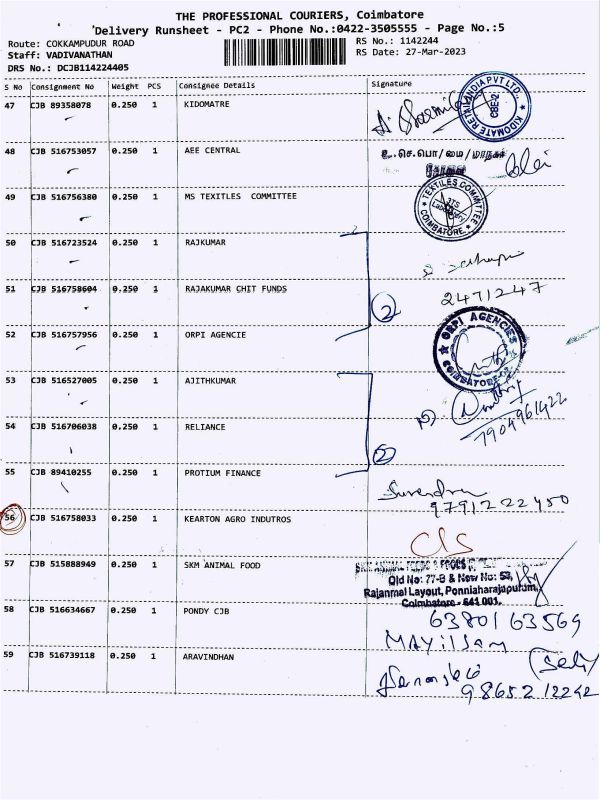 THE PROFESSIONAL COURIERS, Coimbatore
Delivery Runsheet - PC2 - Phone No.:0422-3505555 - Page No.:5
Route: COKKAMPUDUR ROAD RS No.: 1142244
Staff: VADIVANATHAN RS Date: 27-Mar-2023
DRS No.: DCJB114224405
S No Consignment No Weight PCS Consignee Details Signature
47 CJB 89358078 0.250 1 KIDOMATRE
KIDOMATE RETAIL INDIA PVT LTD. CBE-2.
48 CJB 516753057 0.250 1 AEE CENTRAL
உ.செ.பொ/மை/மாநகர்
கோவை
49 CJB 516756380 0.250 1 MS TEXITLES COMMITTEE
TEXTILES COMMITTEE
Laboratory
COIMBATORE
50 CJB 516723524 0.250 1 RAJKUMAR
51 CJB 516758604 0.250 1 RAJAKUMAR CHIT FUNDS
2471247
2
52 CJB 516757956 0.250 1 ORPI AGENCIE
ORPI AGENCIES
COIMBATORE-02
53 CJB 516527005 0.250 1 AJITHKUMAR
7904961422
54 CJB 516706038 0.250 1 RELIANCE
2
55 CJB 89410255 0.250 1 PROTIUM FINANCE
Surendra
9791222450
56 CJB 516758033 0.250 1 KEARTON AGRO INDUTROS
CLS
57 CJB 515888949 0.250 1 SKM ANIMAL FOOD
SKM ANIMAL FEEDS & FOODS
Old No: 77-B & New No: 53,
Rajanmal Layout, Ponniaharajapuram,
Coimbatore - 641 001.
58 CJB 516634667 0.250 1 PONDY CJB
6380163569
MAYILSAM
59 CJB 516739118 0.250 1 ARAVINDHAN
9865212242